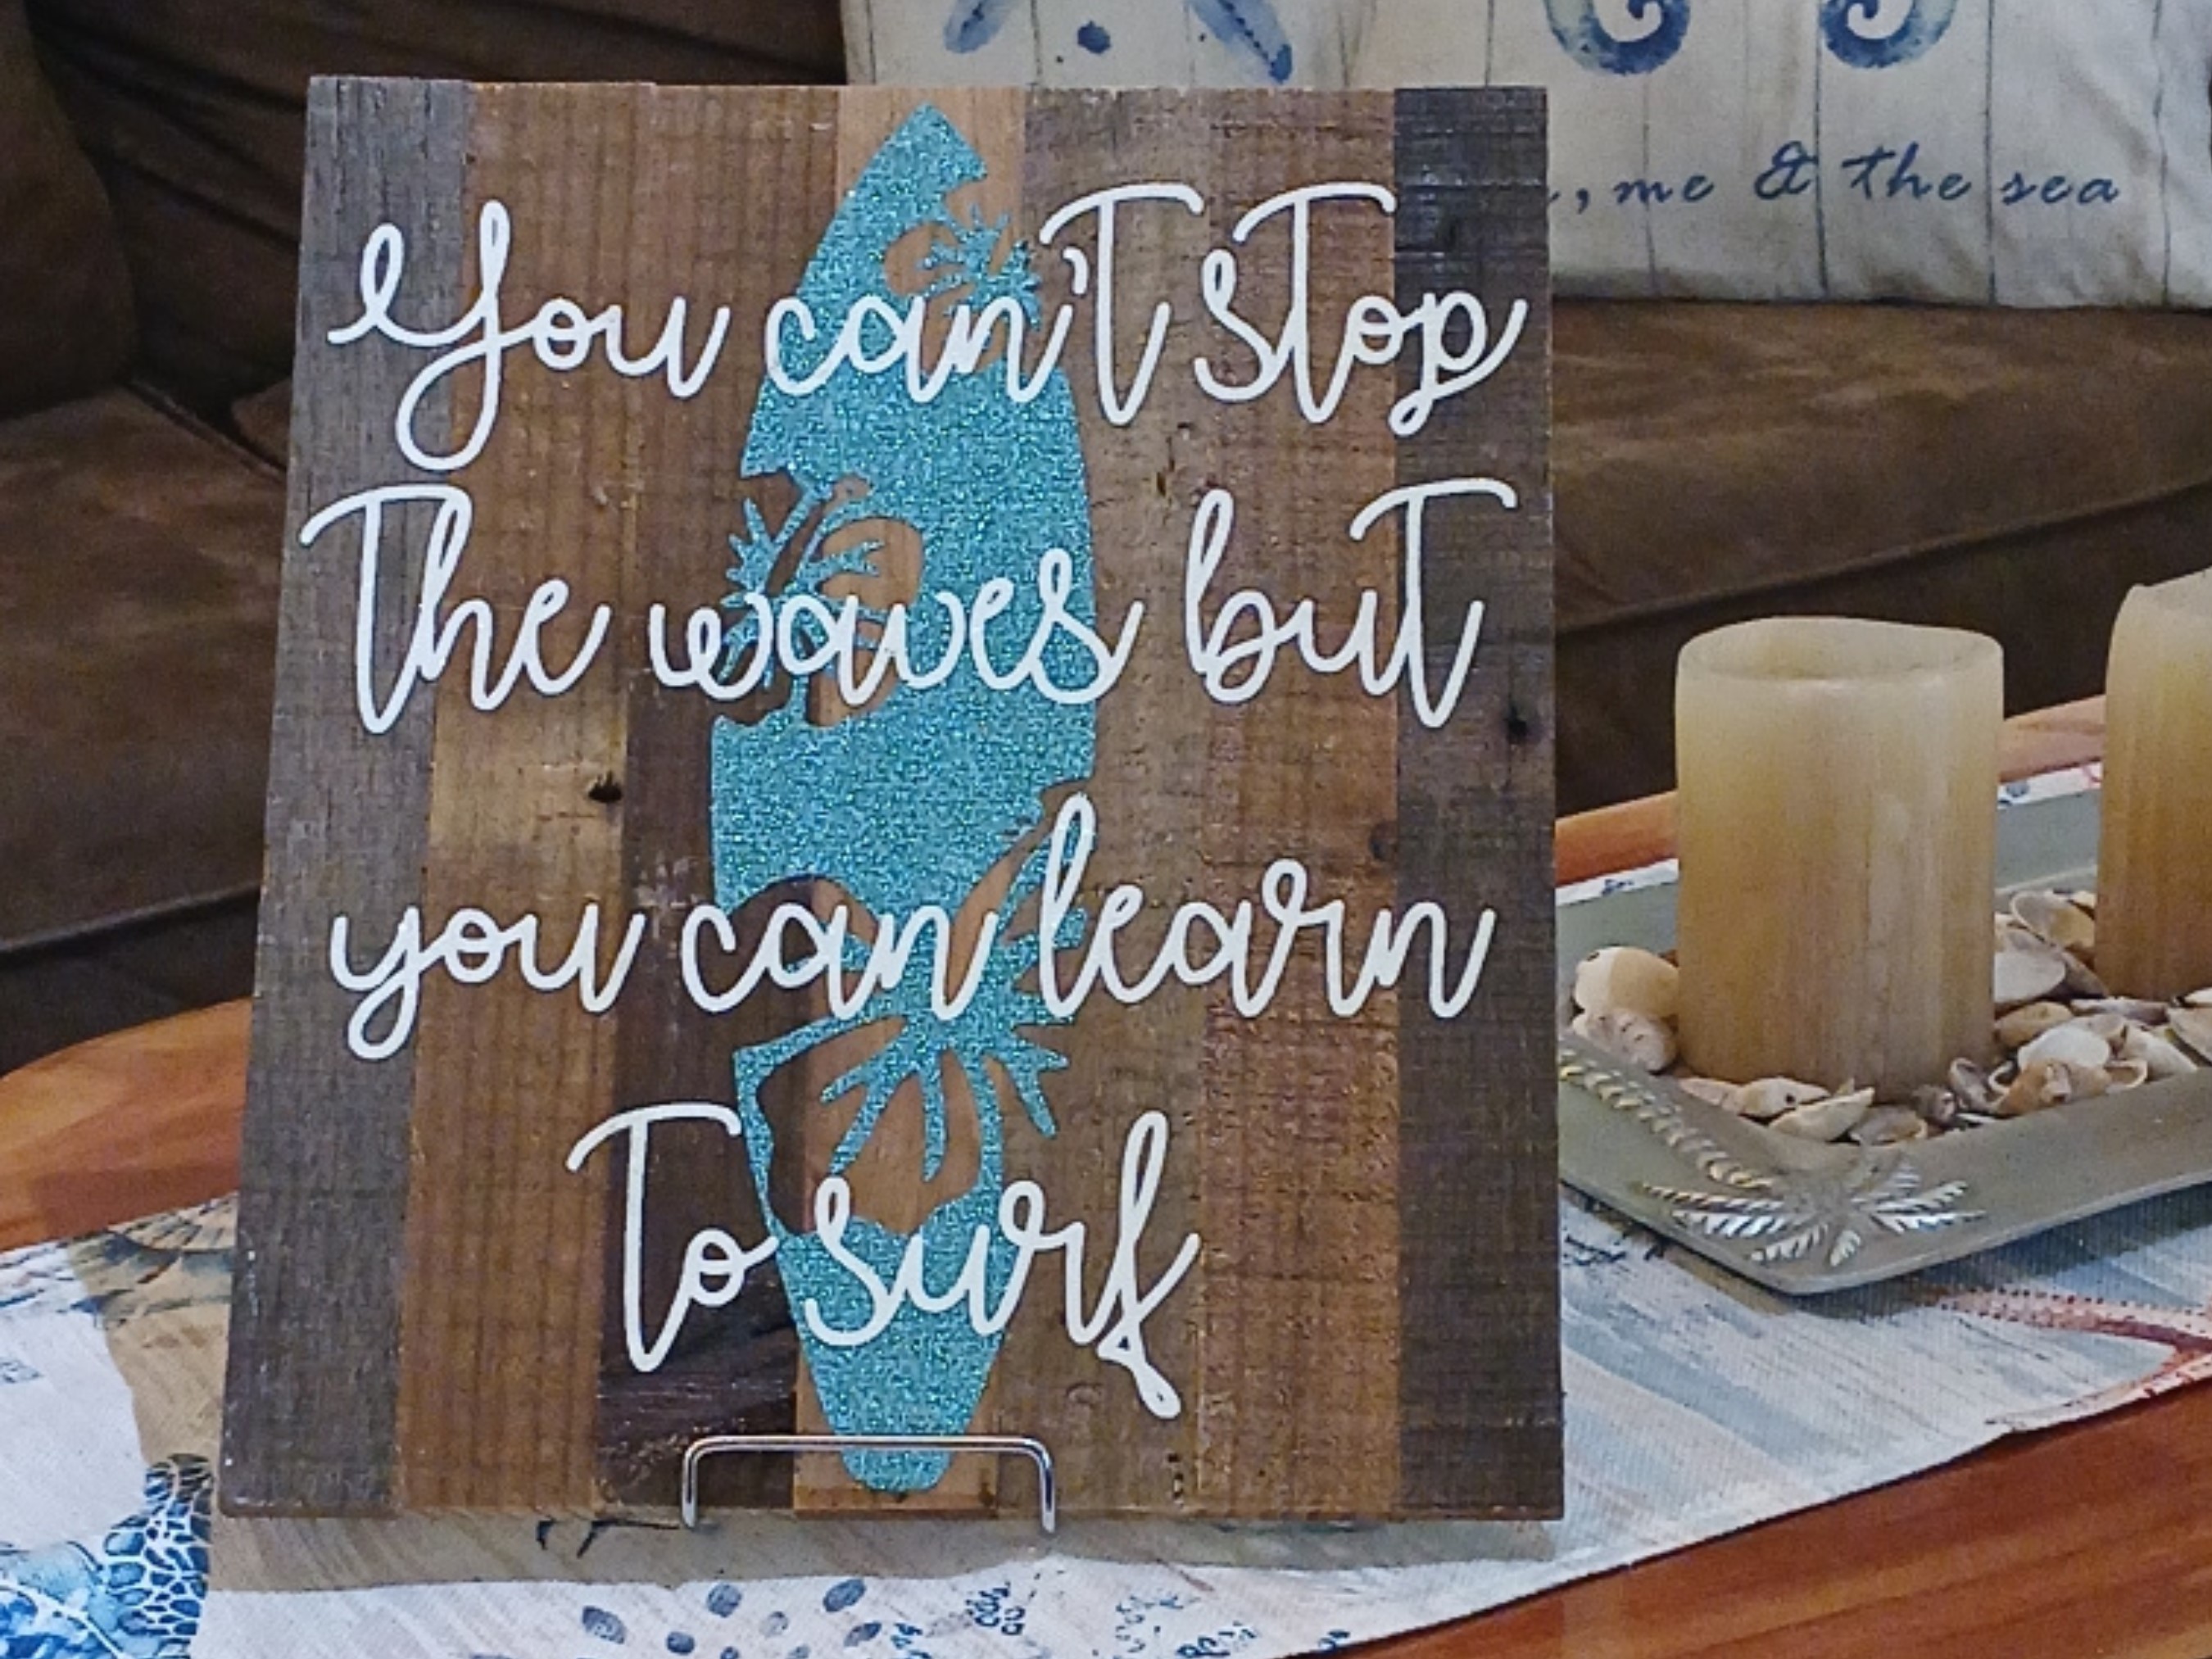 You can't stop
The waves but
you can learn
To surf
, me & the sea